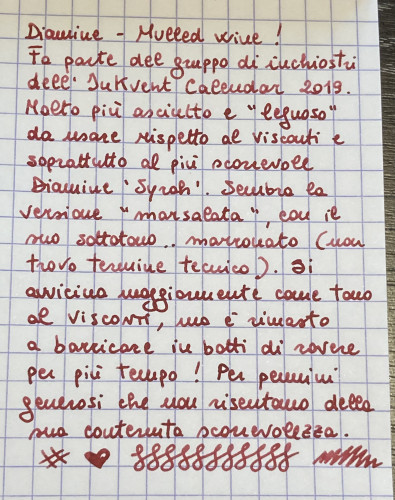 Diamine - Mulled wine !
Fa parte del gruppo di inchiostri
dell' InkVent Calendar 2019.
Molto più asciutto e "legnoso"
da usare rispetto al Visconti e
soprattutto al più scorrevole
Diamine 'Syrah'. Sembra la
versione "marsalata", con il
suo sottotono.. marronato (non
trovo termine tecnico). Si
avvicina maggiormente come tono
al VISCONTI, ma è rimasto
a barricare in botti di rovere
per più tempo ! Per pennini
generosi che non risentano della
sua contenuta scorrevolezza.